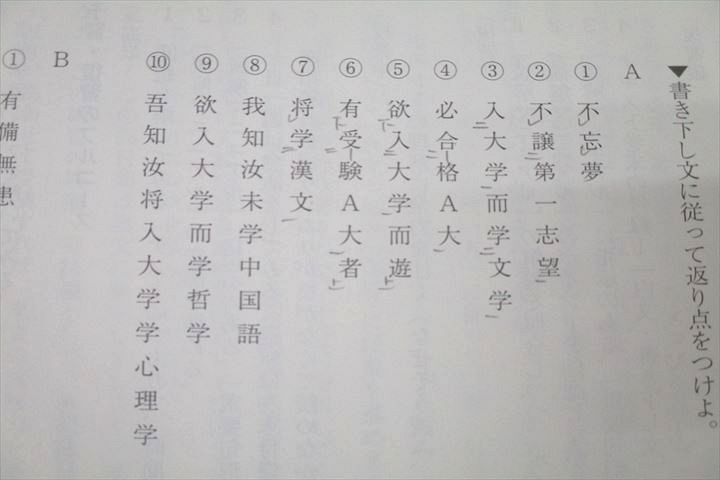 ▼書き下し文に従って返り点をつけよ。
A
① 不忘夢
② 不譲第一志望
③ 入大学而学文学
④ 必合格A大
⑤ 欲入大学而遊
⑥ 有受験A大者
⑦ 将学漢文
⑧ 我知汝未学中国語
⑨ 欲入大学而学哲学
⑩ 吾知汝将入大学学心理学
B
① 有備無患